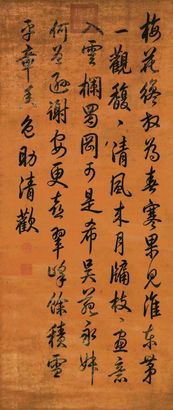 梅花纔放為春寒果見淮東第
一觀馥〻清風來月牖枝〻畫意
入雲欄蜀岡可是希吳苑永叔
何曾遜謝安更喜翠峰餘積雪
平章香色助清歡